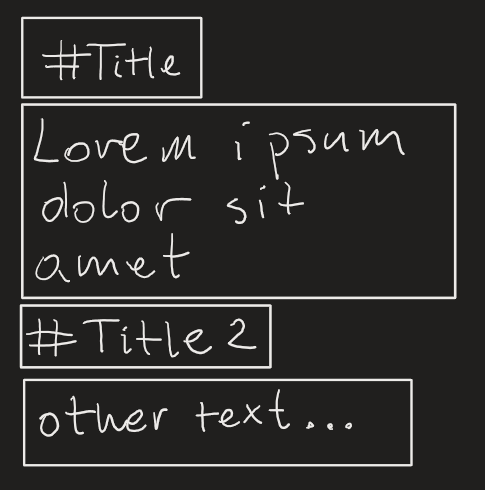 #Title
Lorem ipsum
dolor sit
amet
#Title 2
other text...